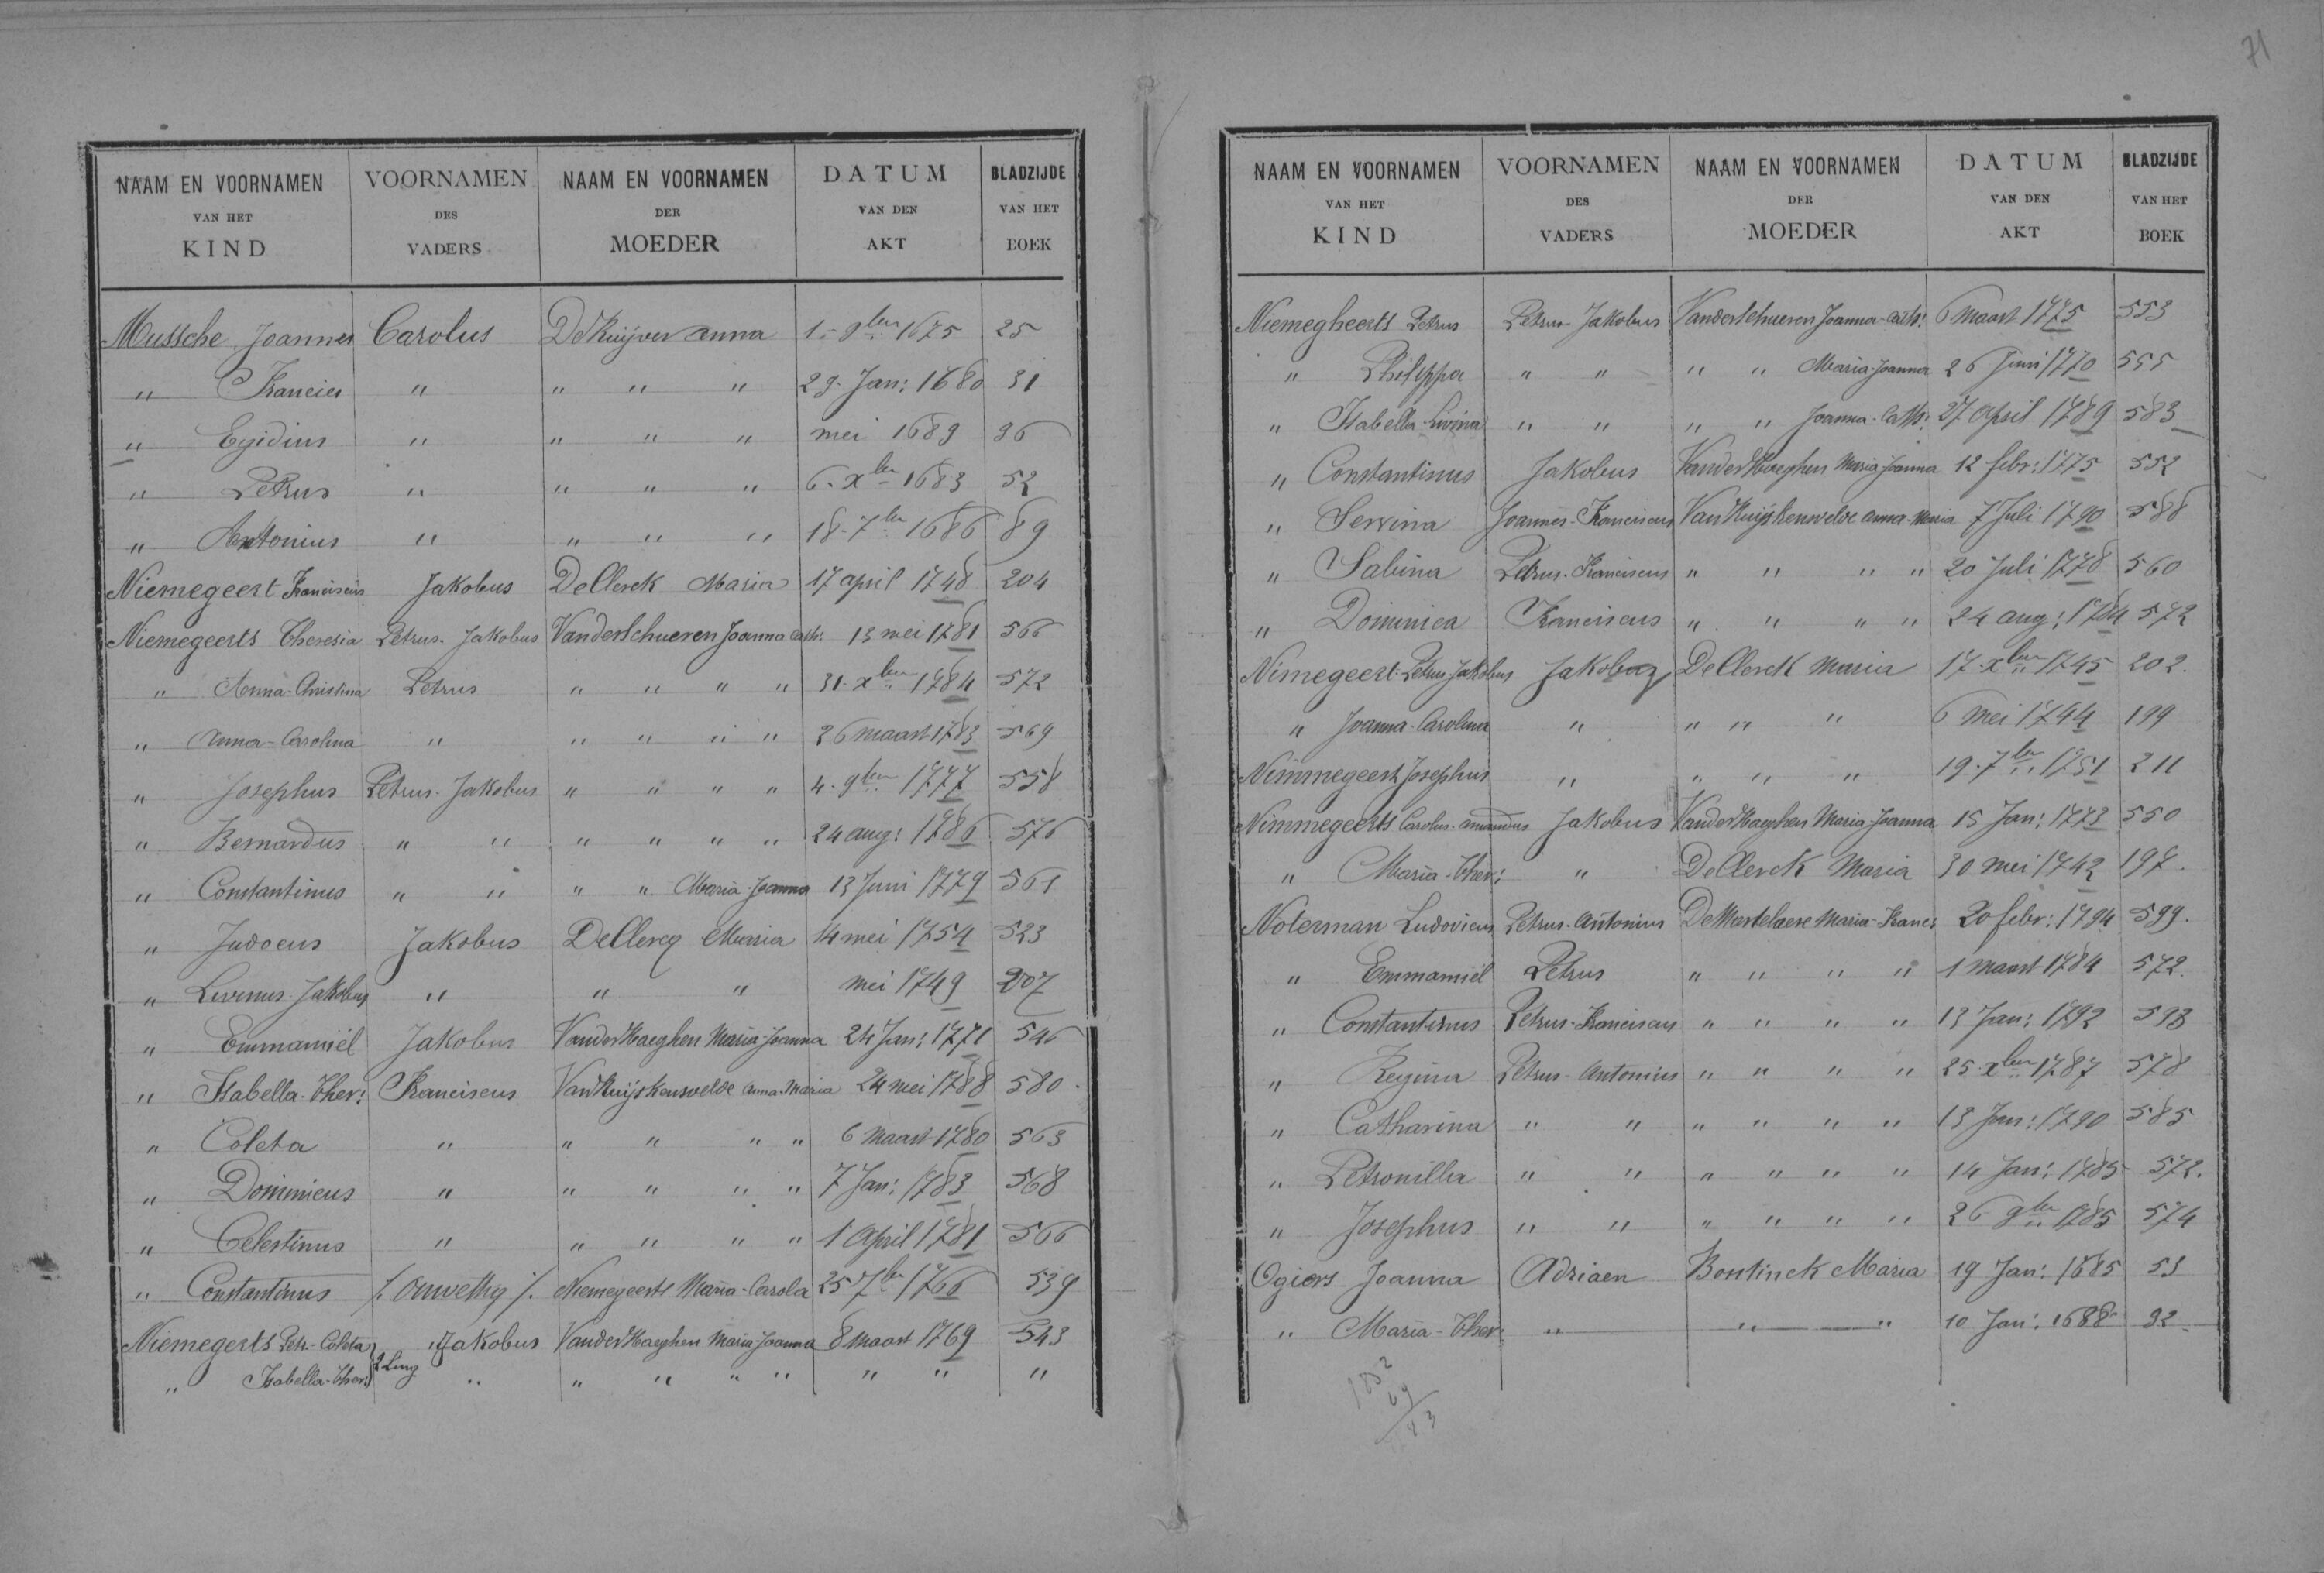 71
NAAM EN VOORNAMEN VAN HET KIND | VOORNAMEN DES VADERS | NAAM EN VOORNAMEN DER MOEDER | DATUM VAN DEN AKT | BLADZIJDE VAN HET BOEK
Mussche Joannes | Carolus | DeKuijver Anna | 1.- 9ber 1675 | 25
" Francies | " | " " " | 29. Jan: 1680 | 31
" Egidius | " | " " " | mei 1689 | 36
" Petrus | " | " " " | 6. Xber 1683 | 52
" Antonius | " | " " " | 18- 7ber 1686 | 89
Niemegeert Franciscus | Jakobus | DeClerck Maria | 17 april 1748 | 204
Niemegeerts Theresia | Petrus. Jakobus | Vanderschueren Joanna Cath: | 13 mei 1781 | 566
" Anna-Christina | Petrus | " " " " | 31. Xber 1784 | 572
" Anna-Carolina | " | " " " " | 26 maart 1783 | 569
" Josephus | Petrus. Jakobus | " " " " | 4. 9ber 1777 | 558
" Bernardus | " " | " " " " | 24 aug: 1786 | 576
" Constantinus | " " | " " Maria-Joanna | 13 Juni 1779 | 561
" Judocus | Jakobus | DeClercq Maria | 14 mei 1754 | 523
" Livinus-Jakobus | " | " " | mei 1749 | 207
" Emmamiël | Jakobus | VanderHaeghen Maria-Joanna | 24 Jan: 1771 | 546
" Isabella-Ther: | Franciscus | VanKuijskensvelde Anna-Maria | 24 mei 1788 | 580
" Coleta | " | " " " " | 6 Maart 1780 | 563
" Dominicus | " | " " " " | 7 Jan: 1783 | 568
" Celestinus | " | " " " " | 1 April 1781 | 566
" Constantinus | /. onwettig /. | Niemegeerts Maria-Carola | 25 7ber 1766 | 539
Niemegerts Petr.-Coleta | " Jakobus | VanderHaeghen Maria-Joanna | 8 maart 1769 | 543
" Isabella-Ther: } 2 Ling | " | " " " " | " " | "
NAAM EN VOORNAMEN VAN HET KIND | VOORNAMEN DES VADERS | NAAM EN VOORNAMEN DER MOEDER | DATUM VAN DEN AKT | BLADZIJDE VAN HET BOEK
Niemegheerts Petrus | Petrus Jakobus | Vanderschueren Joanna-Cath: | 6 Maart 1775 | 553
" Philippa | " " | " " Maria-Joanna | 26 Juni 1770 | 555
" Isabella-Livina | " " | " " Joanna-Cath: | 27 April 1789 | 583
" Constantinus | Jakobus | VanderHaeghen Maria Joanna | 12 febr: 1775 | 552
" Servina | Joannes-Franciscus | VanKuijskenvelde Anna-Maria | 7 Juli 1790 | 588
" Sabina | Petrus. Franciscus | " " " " | 20 Juli 1778 | 560
" Dominica | Franciscus | " " " " | 24 aug: 1784 | 572
Nimegeert Petrus-Jakobus | Jakobus | DeClerck Maria | 17. Xber 1745 | 202.
" Joanna-Carolina | " | " " " | 6 Mei 1744 | 199
Nimmegeert Josephus | " | " " " | 19. 7ber 1751 | 211
Nimmegeerts Carolus-amandus | Jakobus | VanderHaeghen Maria-Joanna | 15 Jan: 1773 | 550
" Maria-Ther: | " | DeClerck Maria | 30 mei 1742 | 197.
Noterman Ludovicus | Petrus-Antonius | DeMartelaere Maria-Franc: | 20 febr: 1794 | 599.
" Emmamiël | Petrus | " " " " | 1 maart 1784 | 572.
" Constantinus | Petrus-Franciscus | " " " " | 13 Jan: 1792 | 593
" Regina | Petrus-Antonius | " " " " | 25. Xber 1787 | 578
" Catharina | " " | " " " " | 13 Jan: 1790 | 585
" Petronilla | " " | " " " " | 14 Jan: 1785 | 572.
" Josephus | " " | " " " " | 26 9ber 1785 | 574
Ogiers Joanna | Adriaen | Bontinck Maria | 19 Jan: 1685 | 53
" Maria-Ther: | " | " " | 10 Jan: 1688 | 92